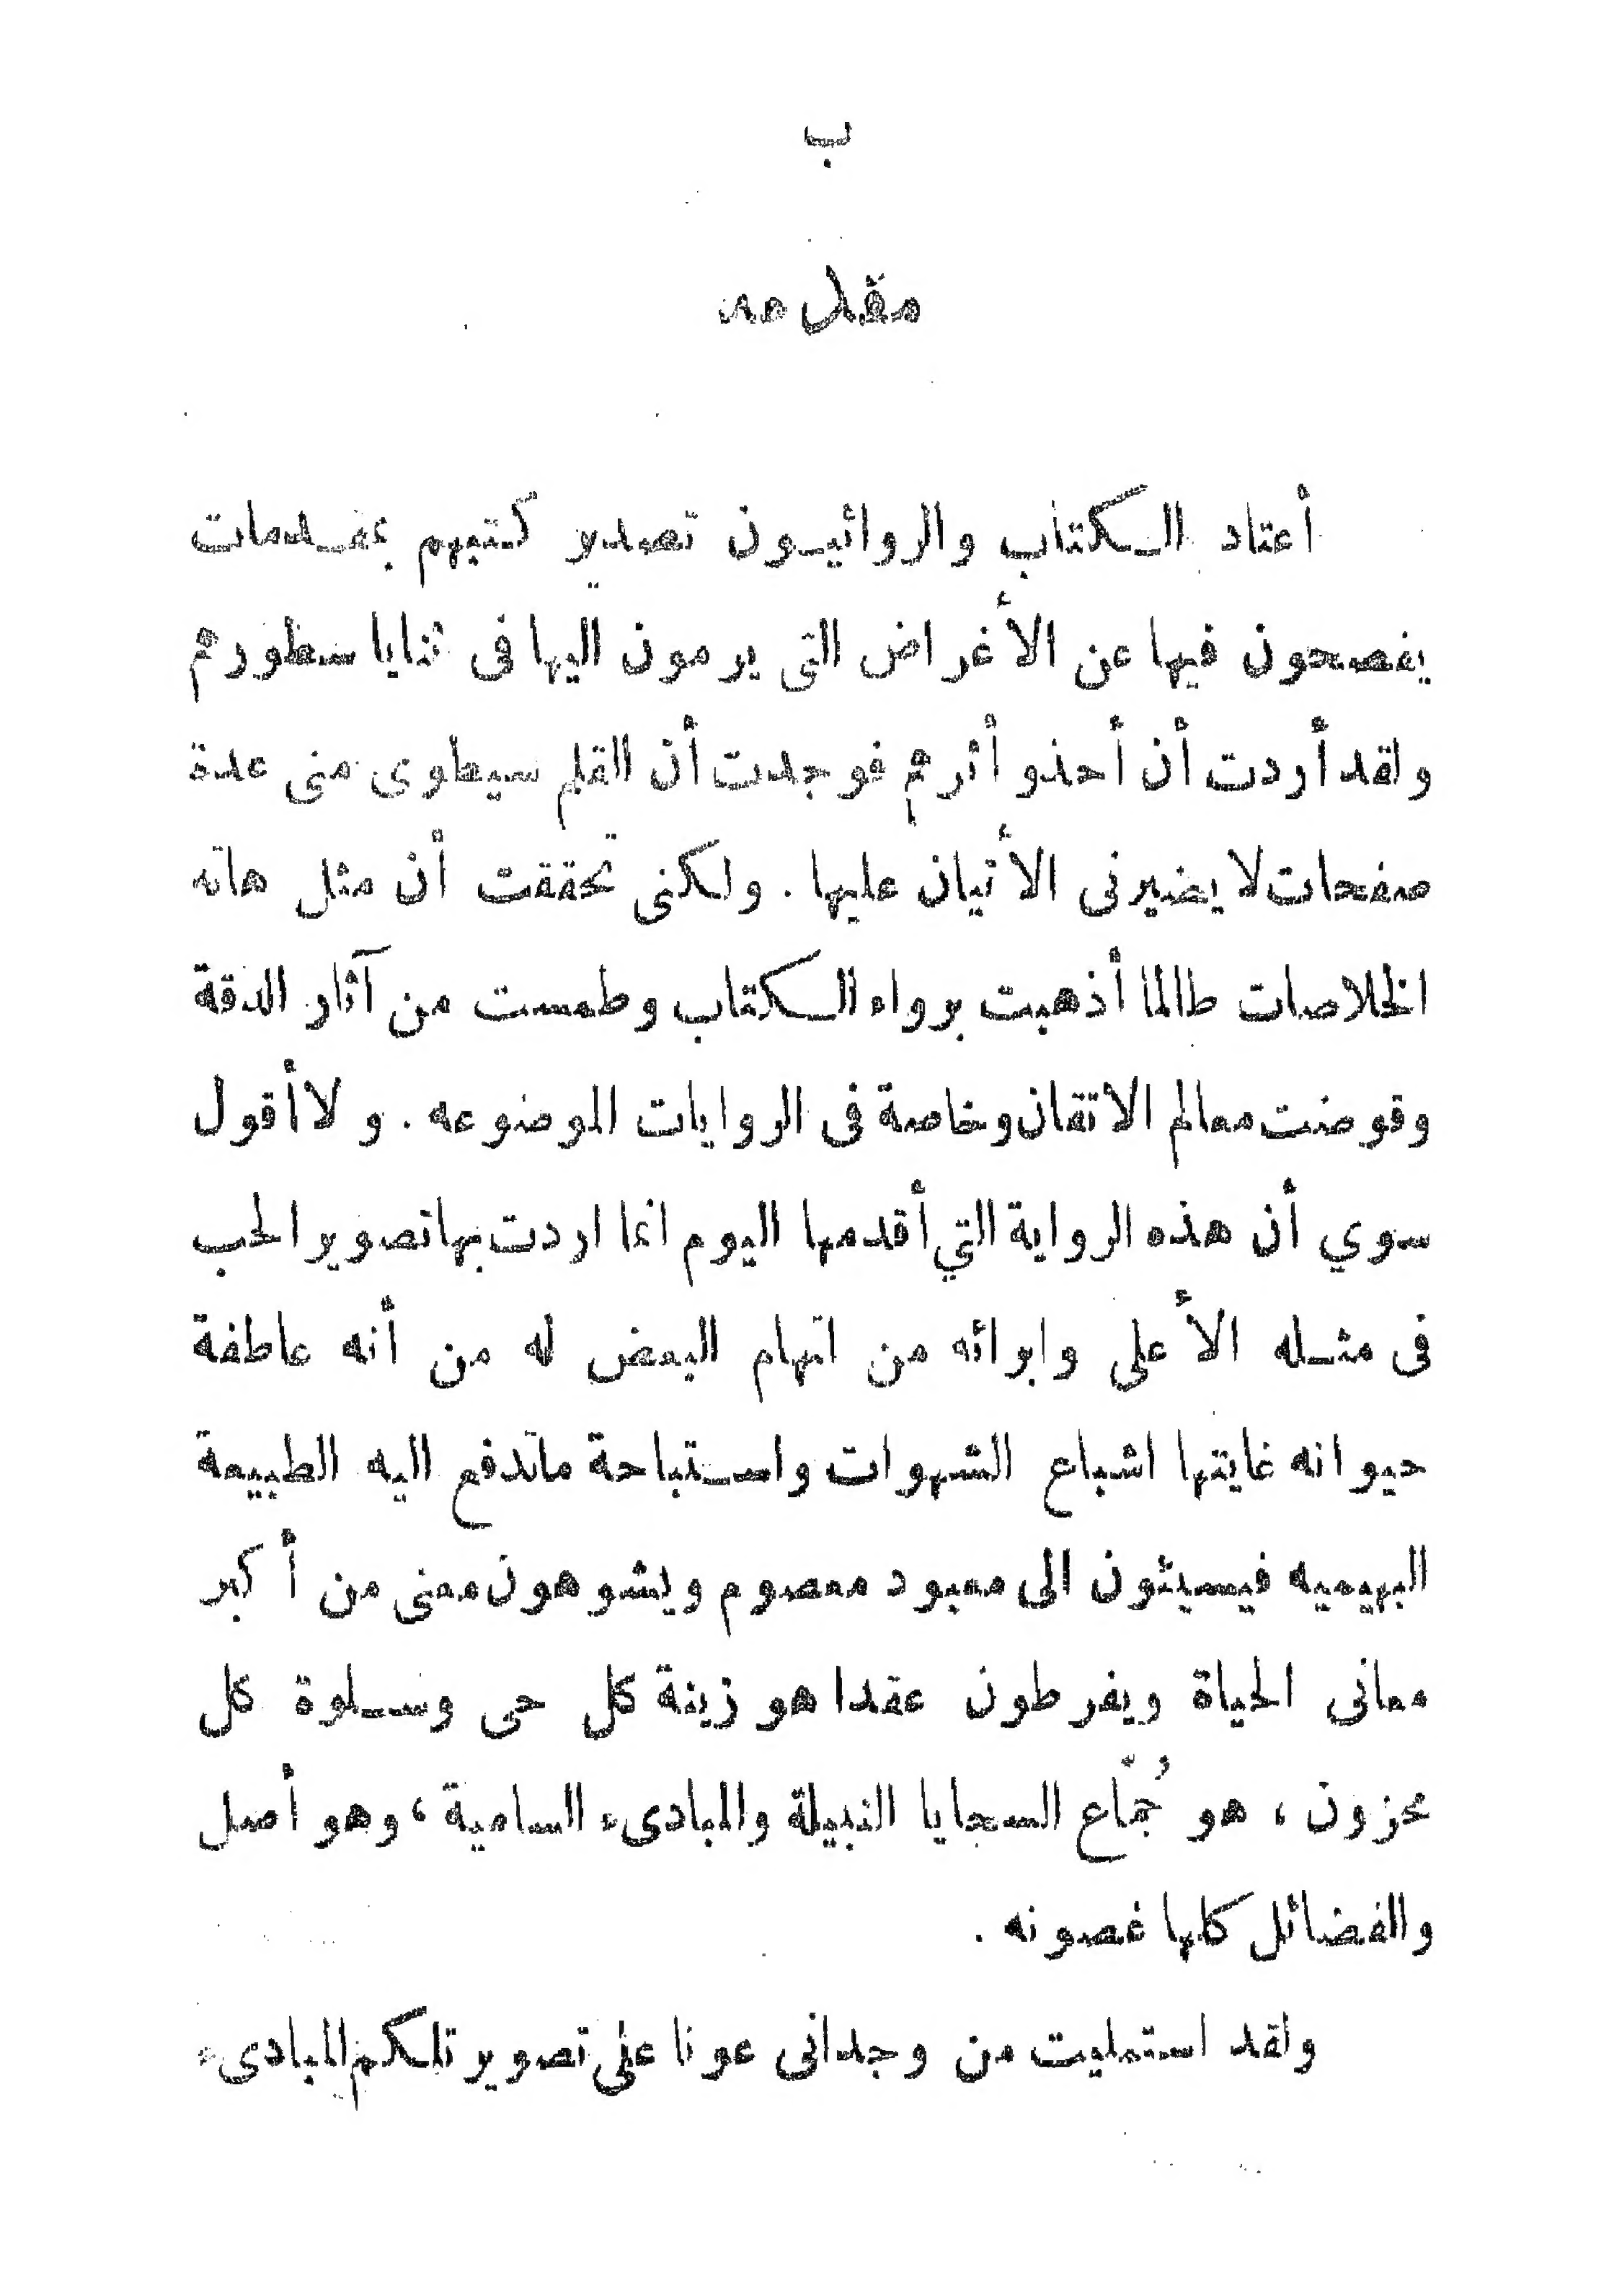 ب
مقدمه
أعتاد الكتاب والروائيون تصدير كتبهم بمقدمات
يفصحون فيها عن الأغراض التى يرمون اليها فى ثنايا سطورهم
ولقد أردت أن أحذو أثرهم فوجدت أن القلم سيطوى منى عدة
صفحات لا يضيرنى الأتيان عليها . ولكنى تحققت أن مثل هاته
الخلاصات طالما أذهبت برواء الكتاب وطمست من آثار الدقة
وقوضت معالم الاتقان وخاصة فى الروايات الموضوعه . ولا أقول
سوي أن هذه الرواية التي أقدمها اليوم انما اردت بها تصوير الحب
فى مثله الأعلى وابرائه من اتهام البعض له من أنه عاطفة
حيوانه غايتها اشباع الشهوات واستباحة ماتدفع اليه الطبيعة
البهيميه فيسيئون الى معبود معصوم ويشوهون معنى من أكبر
معانى الحياة ويفرطون عقدا هو زينة كل حى وسلوة كل
محزون ، هو جُمّاع السجايا النبيلة والمبادىء السامية ، وهو أصل
والفضائل كلها غصونه .
ولقد استمليت من وجدانى عونا على تصوير تلكم المبادىء